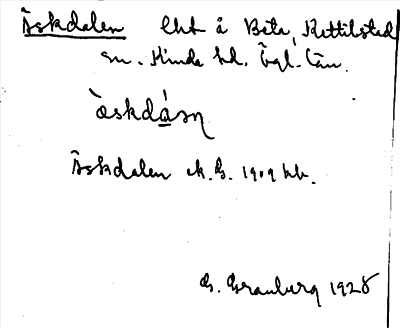 Äskdalen lht å Beta, Kettilstad
sn. Kinda hd. Ögl. län.
äskdáɳ
Äskdalen ek.G. 1909 bl.
G. Granberg 1928